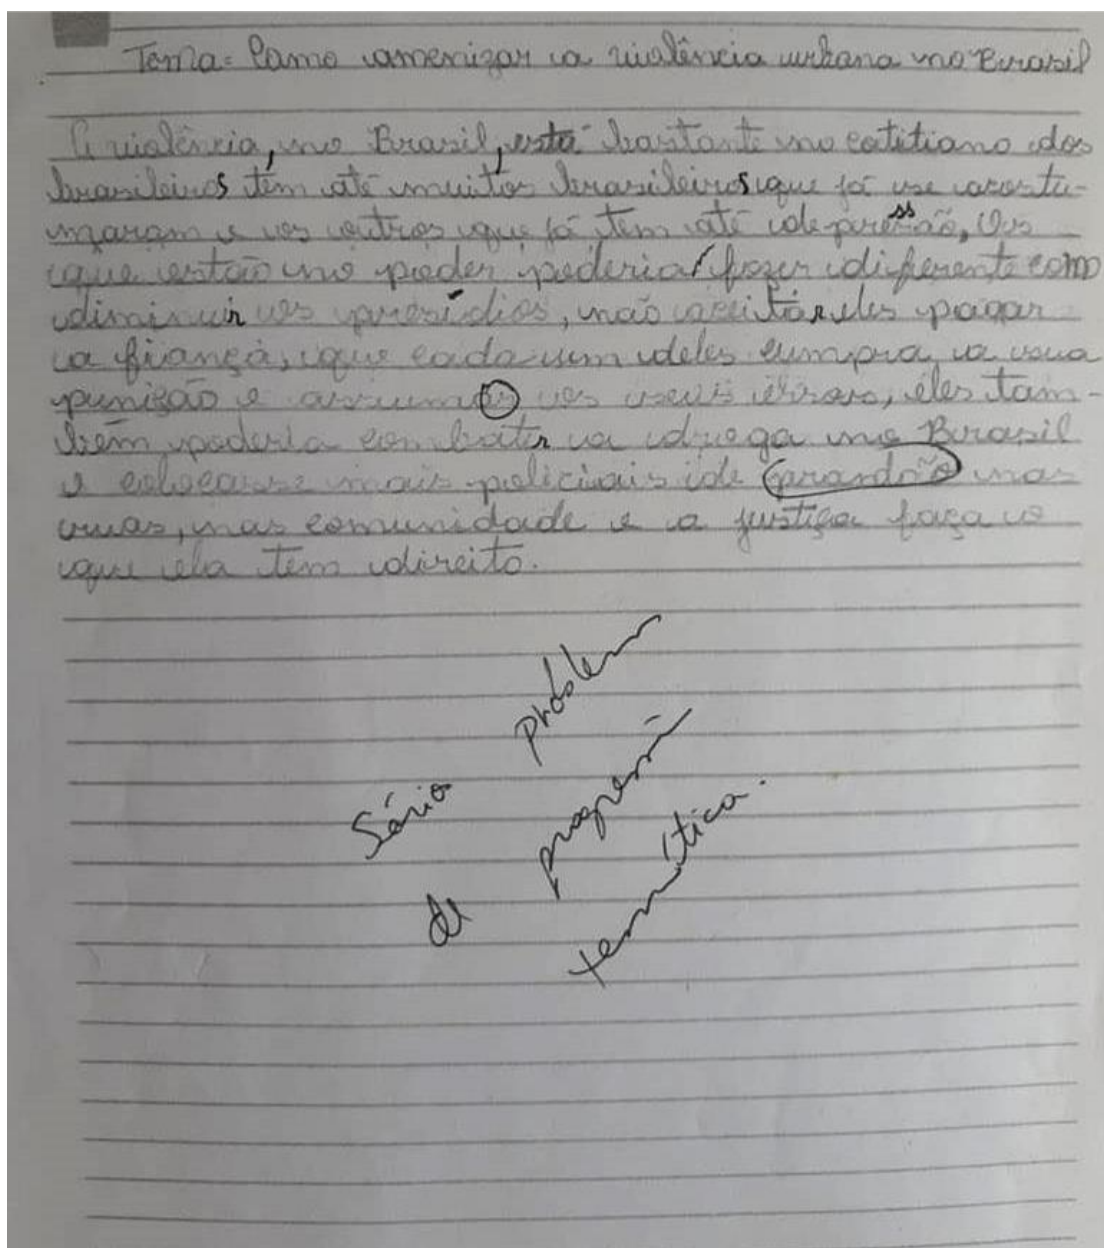 Tema: Como amenizar a violência urbana no Brasil
A violência, no Brasil, está bastante no cotitiano dos
brasileiros têm até muitos brasileiros que já se acostu-
maram e os outros que já tem até depressão, Os
que estão no poder poderia fazer diferente como
diminuir os presídios, não aceitar eles pagar
a fiança, que cada um deles cumpra a sua
punição e assuma os seus erros, eles tam-
bém poderia combater a droga no Brasil
e colocasse mais policiais de grandão nas
ruas, nas comunidade e a justiça faça o
que ela tem direito.
Sério problema
de progressão
temática.